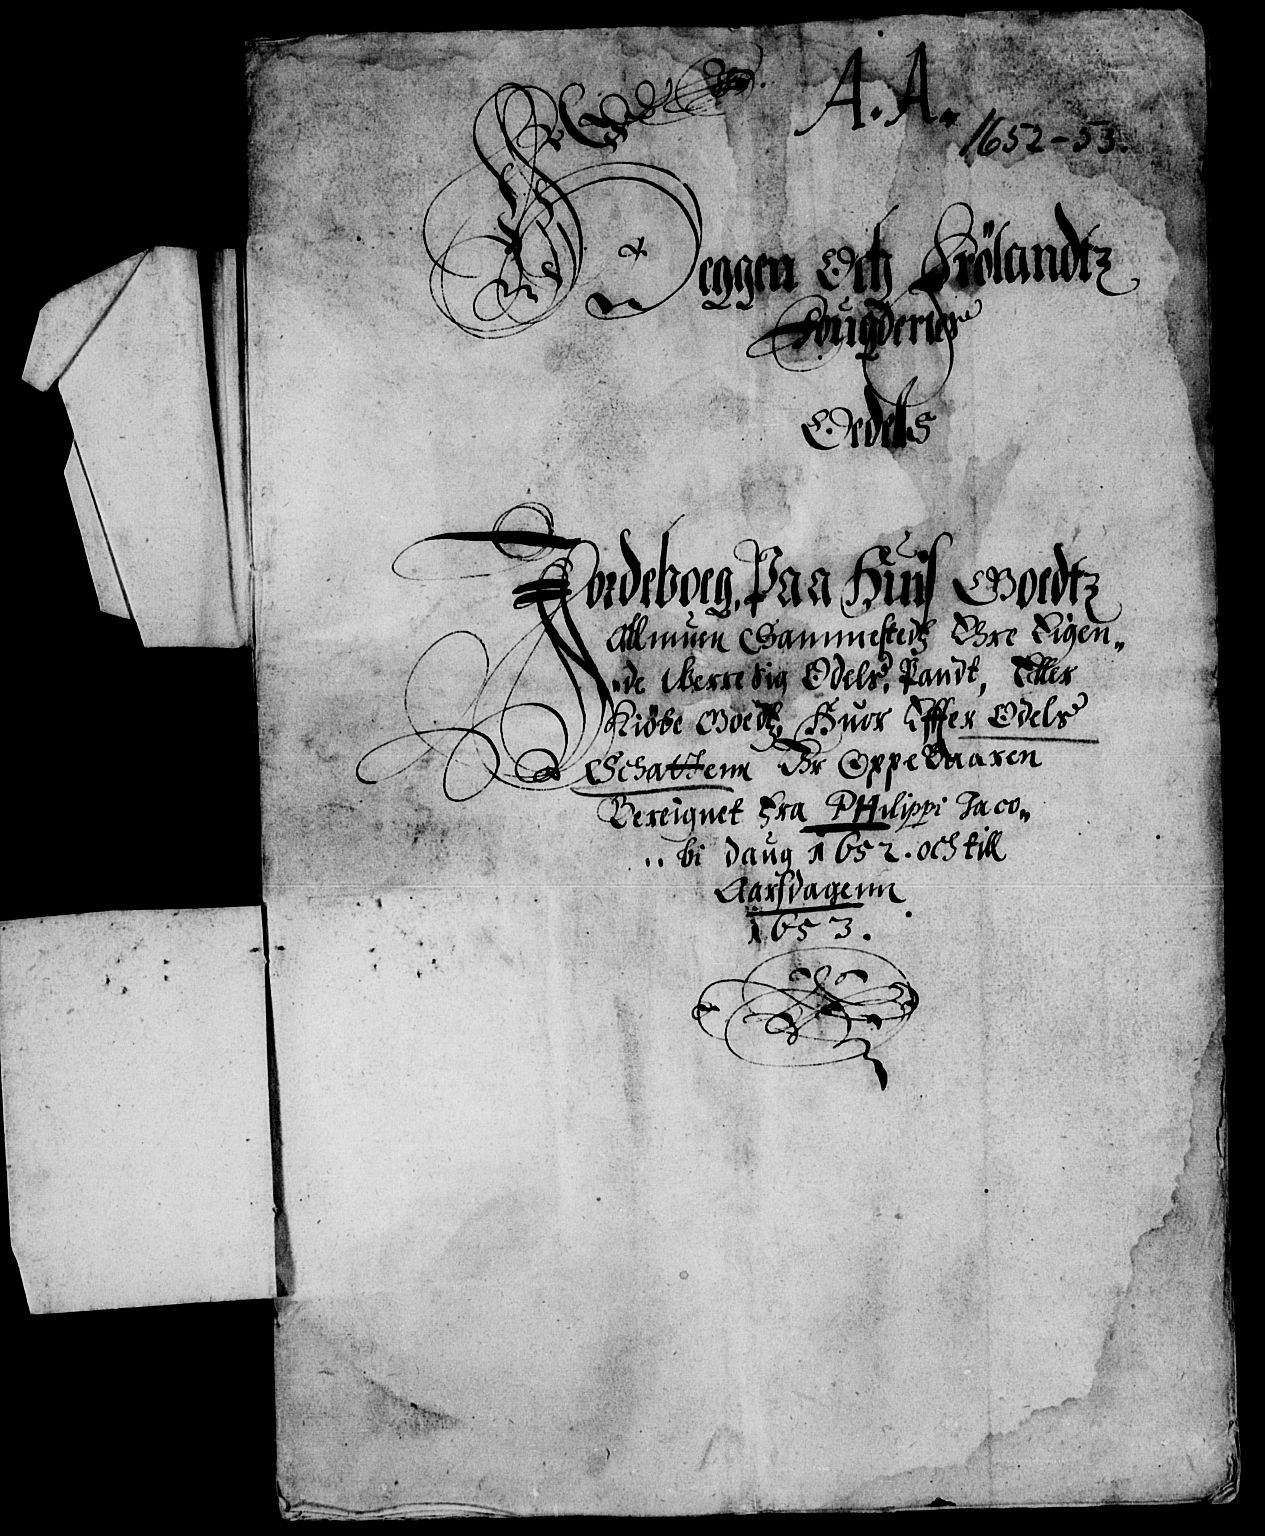 A. A.
1652-53.
Heggen Och Frölandtz
Fougderies
Oedels
Jordeboeg, Paa Huis Goedtz
Allmuen Sammestedtz Ere Eigen„
„de Berretig Odels, Pandt, Eller
Kiöbe Goedtz, Huor Effter Odels
Schattenn Er Oppebaaren
Bereignet Fra PHilippi Jaco„
„bi daug 1652. och till
Aarsdagenn
1653.